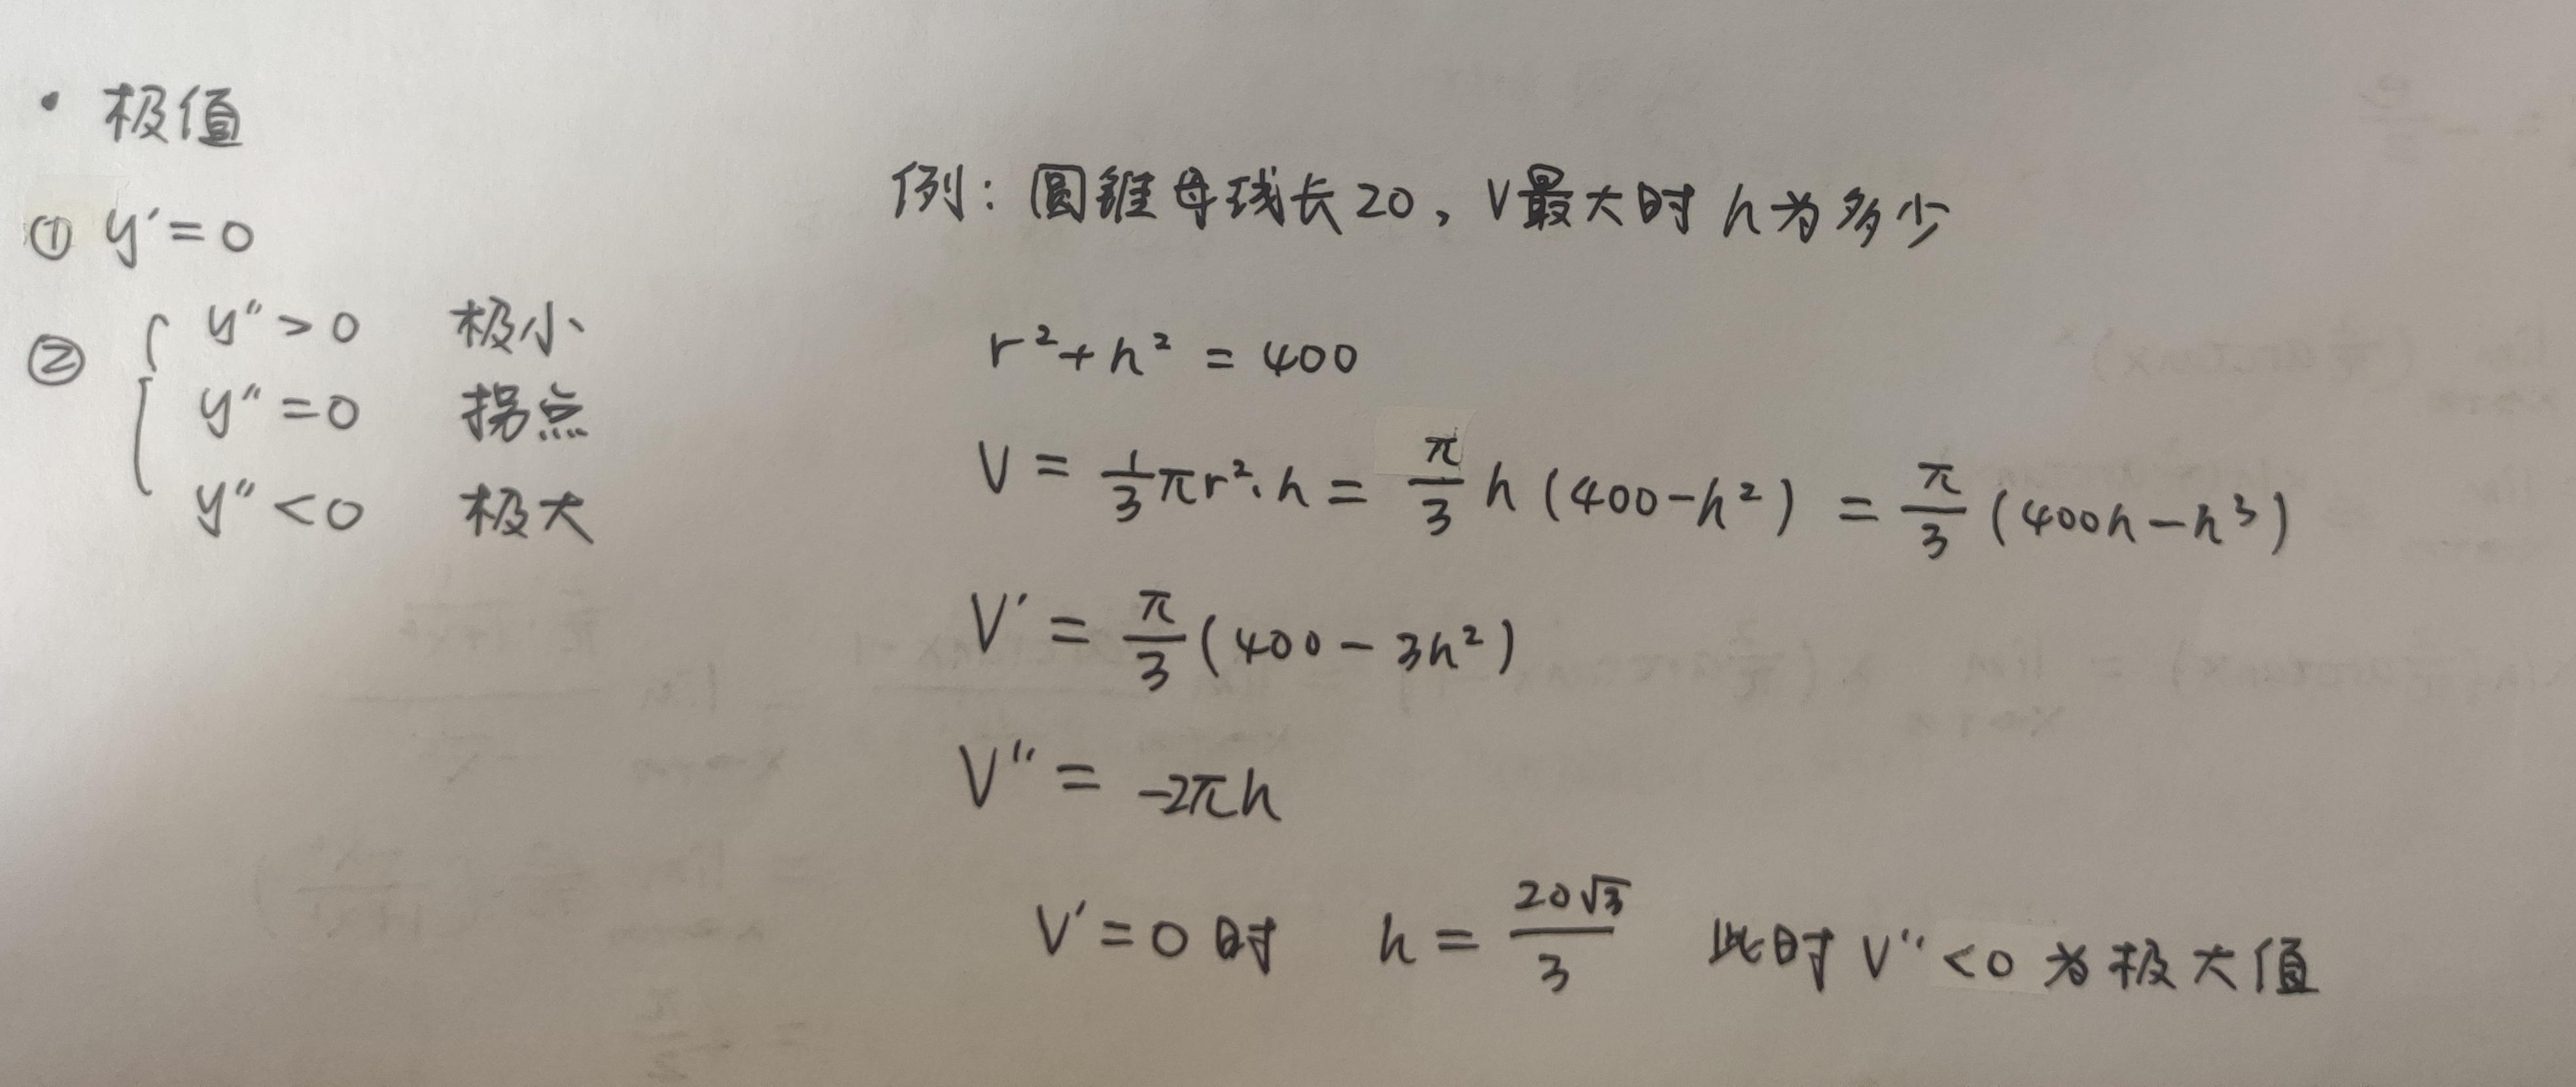 · 极值
① y′=0
② { y″>0 极小
y″=0 拐点
y″<0 极大
例：圆锥母线长20，V最大时h为多少
r²+h²=400
V=1/3πr²·h=π/3 h(400-h²)=π/3(400h-h³)
V′=π/3(400-3h²)
V″=-2πh
V′=0时 h=20√3/3 此时V″<0为极大值